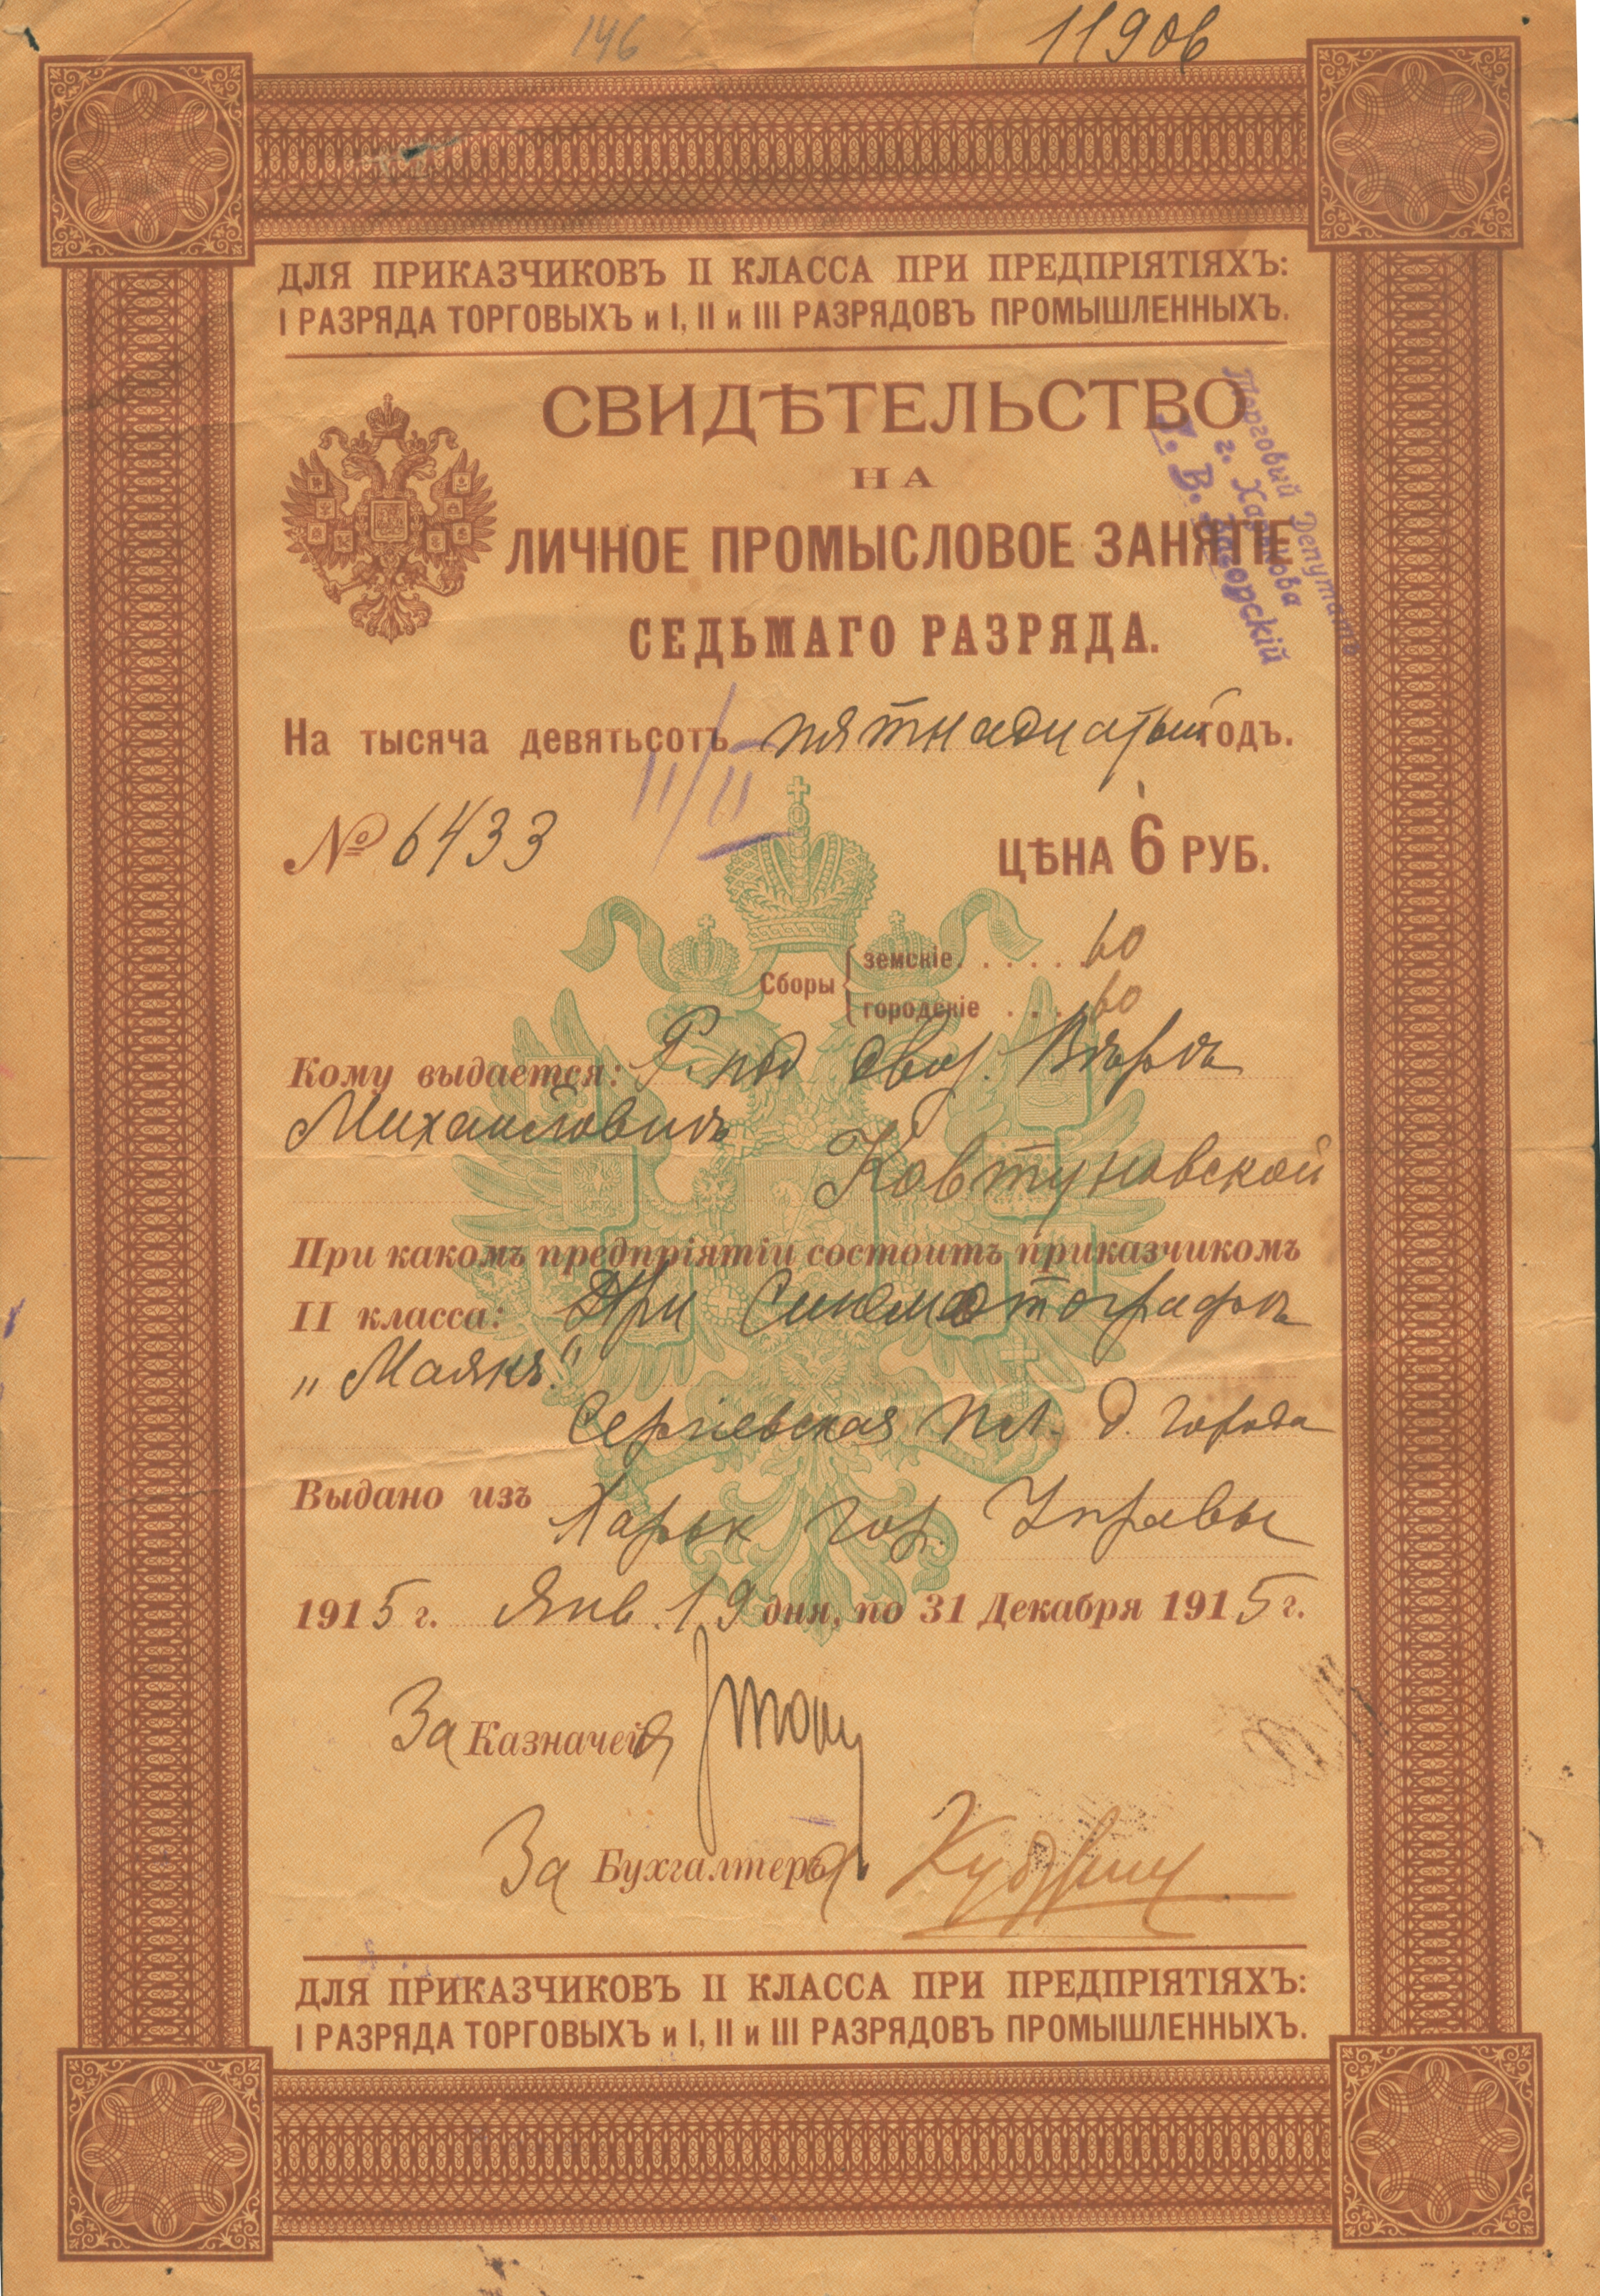 146
11906
ДЛЯ ПРИКАЗЧИКОВЪ II КЛАССА ПРИ ПРЕДПРІЯТІЯХЪ:
I РАЗРЯДА ТОРГОВЫХЪ и I, II и III РАЗРЯДОВЪ ПРОМЫШЛЕННЫХЪ.
СВИДѢТЕЛЬСТВО
НА
ЛИЧНОЕ ПРОМЫСЛОВОЕ ЗАНЯТІЕ
СЕДЬМАГО РАЗРЯДА.
Торговый Депутатъ
г. Харькова
В. Загорскій
На тысяча девятьсотъ пятнадцатый годъ.
II/II
№ 6433
ЦѢНА 6 РУБ.
Сборы земскіе. . . . . 60
городскіе . . . 60
Кому выдается: под двор. Вѣрѣ
Михайловнѣ
Ковтуновской
При какомъ предпріятіи состоитъ приказчикомъ
II класса: При Синематографѣ
„Маякъ“
Сергіевская пл. д. города
Выдано изъ
Харьк гор. Управы
1915 г. Янв. 19 дня, по 31 Декабря 1915 г.
За Казначея
За Бухгалтера
ДЛЯ ПРИКАЗЧИКОВЪ II КЛАССА ПРИ ПРЕДПРІЯТІЯХЪ:
I РАЗРЯДА ТОРГОВЫХЪ и I, II и III РАЗРЯДОВЪ ПРОМЫШЛЕННЫХЪ.